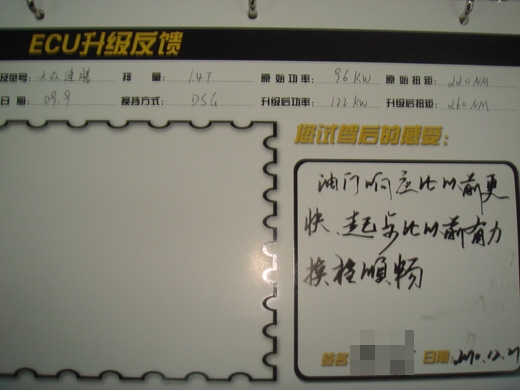 ECU升级反馈
及型号: 大众速腾 排 量: 1.4T 原始功率: 96KW 原始扭矩: 220NM
日 期: 09.9 换挡方式: DSG 升级后功率: 122KW 升级后扭矩: 260NM
您试驾后的感受:
油门响应比以前更
快、起步比以前有力
换挡顺畅
签名 日期: 2010.12.21